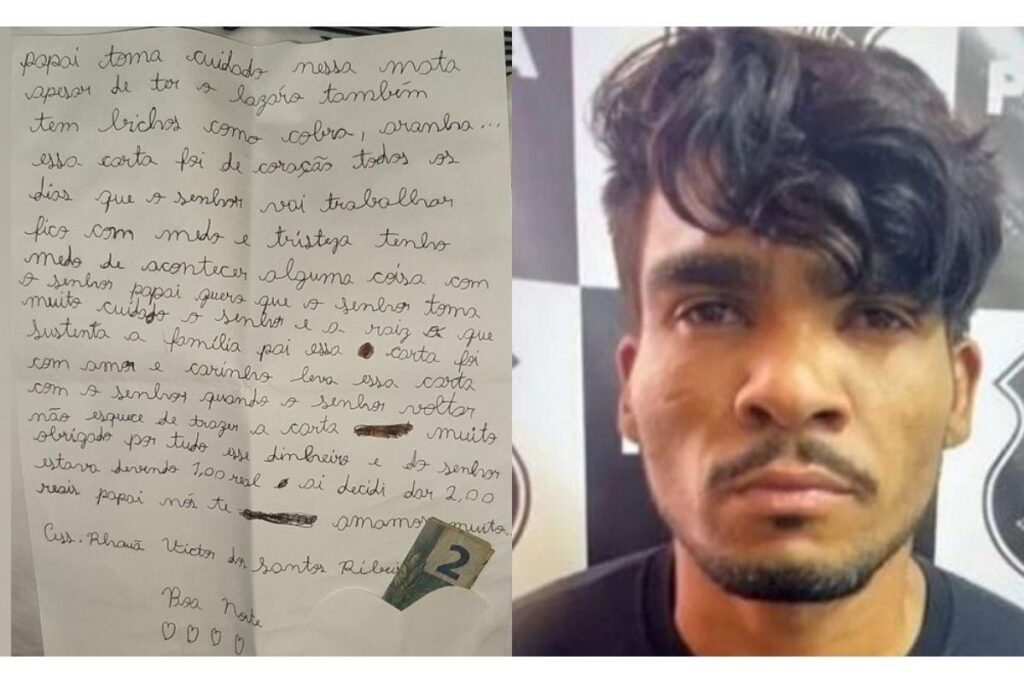 papai toma cuidado nessa mata
apesar de ter o lazaro também
tem bichos como cobra, aranha...
essa carta foi de coração todos os
dias que o senhor vai trabalhar
fico com medo e tristeza tenho
medo de acontecer alguma coisa com
o senhor papai quero que o senhor toma
muito cuidado o senhor e a raiz que
sustenta a família pai essa carta foi
com amor e carinho leva essa carta
com o senhor quando o senhor voltar
não esquece de trazer a carta muito
obrigado por tudo esse dinheiro e do senhor
estava devendo 1,00 real ai decidi dar 2,00
reais papai nós te amamos muito.
Ass. Rhauã Victor dos Santos Ribei
2
Boa Noite
A
P